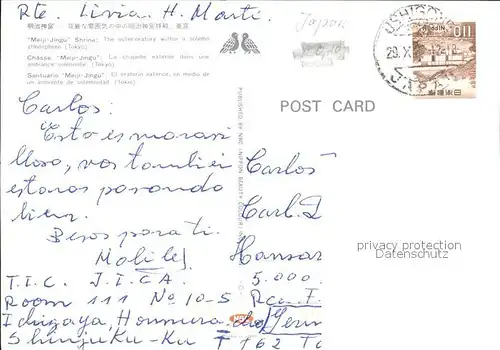 Rte. Livia H. Marti.
Japon
明治神宮
"Meiji-Jingu" Shrine: The outeroratory within a solemn
atmosphere (Tokyo)
Châsse "Meiji-Jingu": La chapelle extérée dans une
ambiance solennelle (Tokyo)
Santuario "Meiji-Jingu": El oratorio externo, en medio de
un ambiente de solemnidad (Tokyo)
USHIGOME
29.X
JAPAN
110
NIPPON
日本郵便
POST CARD
PUBLISHED BY NBC (NIPPON BEAUTY COLOUR) IN
Carlos:
Esto es maravi
lloso, nos
estamos pasando
bien.
Besos para ti.
T.I.C. J.I.C.A.
Room 111 No. 10-5
Ichigaya, Honmura-cho
Shinjuku-Ku T 162 To
Carlos
Carl. D
Hansar
5.000
Rca. F.
Germ
NBC
privacy protection
AnsichtskartenCenter